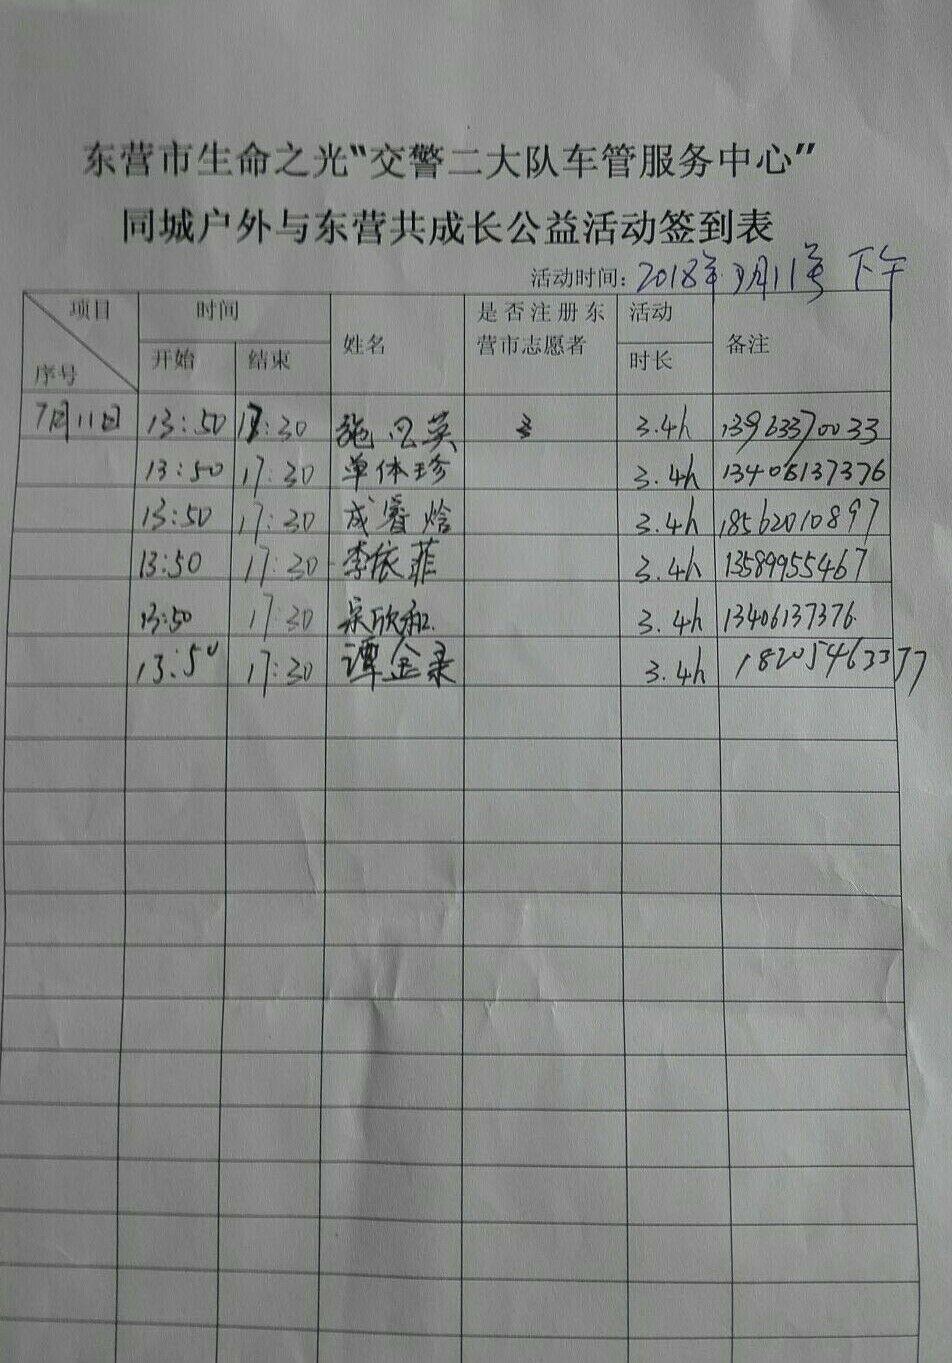 东营市生命之光“交警二大队车管服务中心”
同城户外与东营共成长公益活动签到表
活动时间：2018年7月11号 下午
项目 时间 姓名 是否注册东营市志愿者 活动时长 备注
序号 开始 结束
7月11日 13:50 17:30 施 英 3.4h 13963370033
13:50 17:30 单体珍 3.4h 13406137376
13:50 17:30 成睿焓 3.4h 18562010897
13:50 17:30 李依菲 3.4h 13589955467
13:50 17:30 欣和 3.4h 13406137376
13:50 17:30 谭金录 3.4h 18205463377